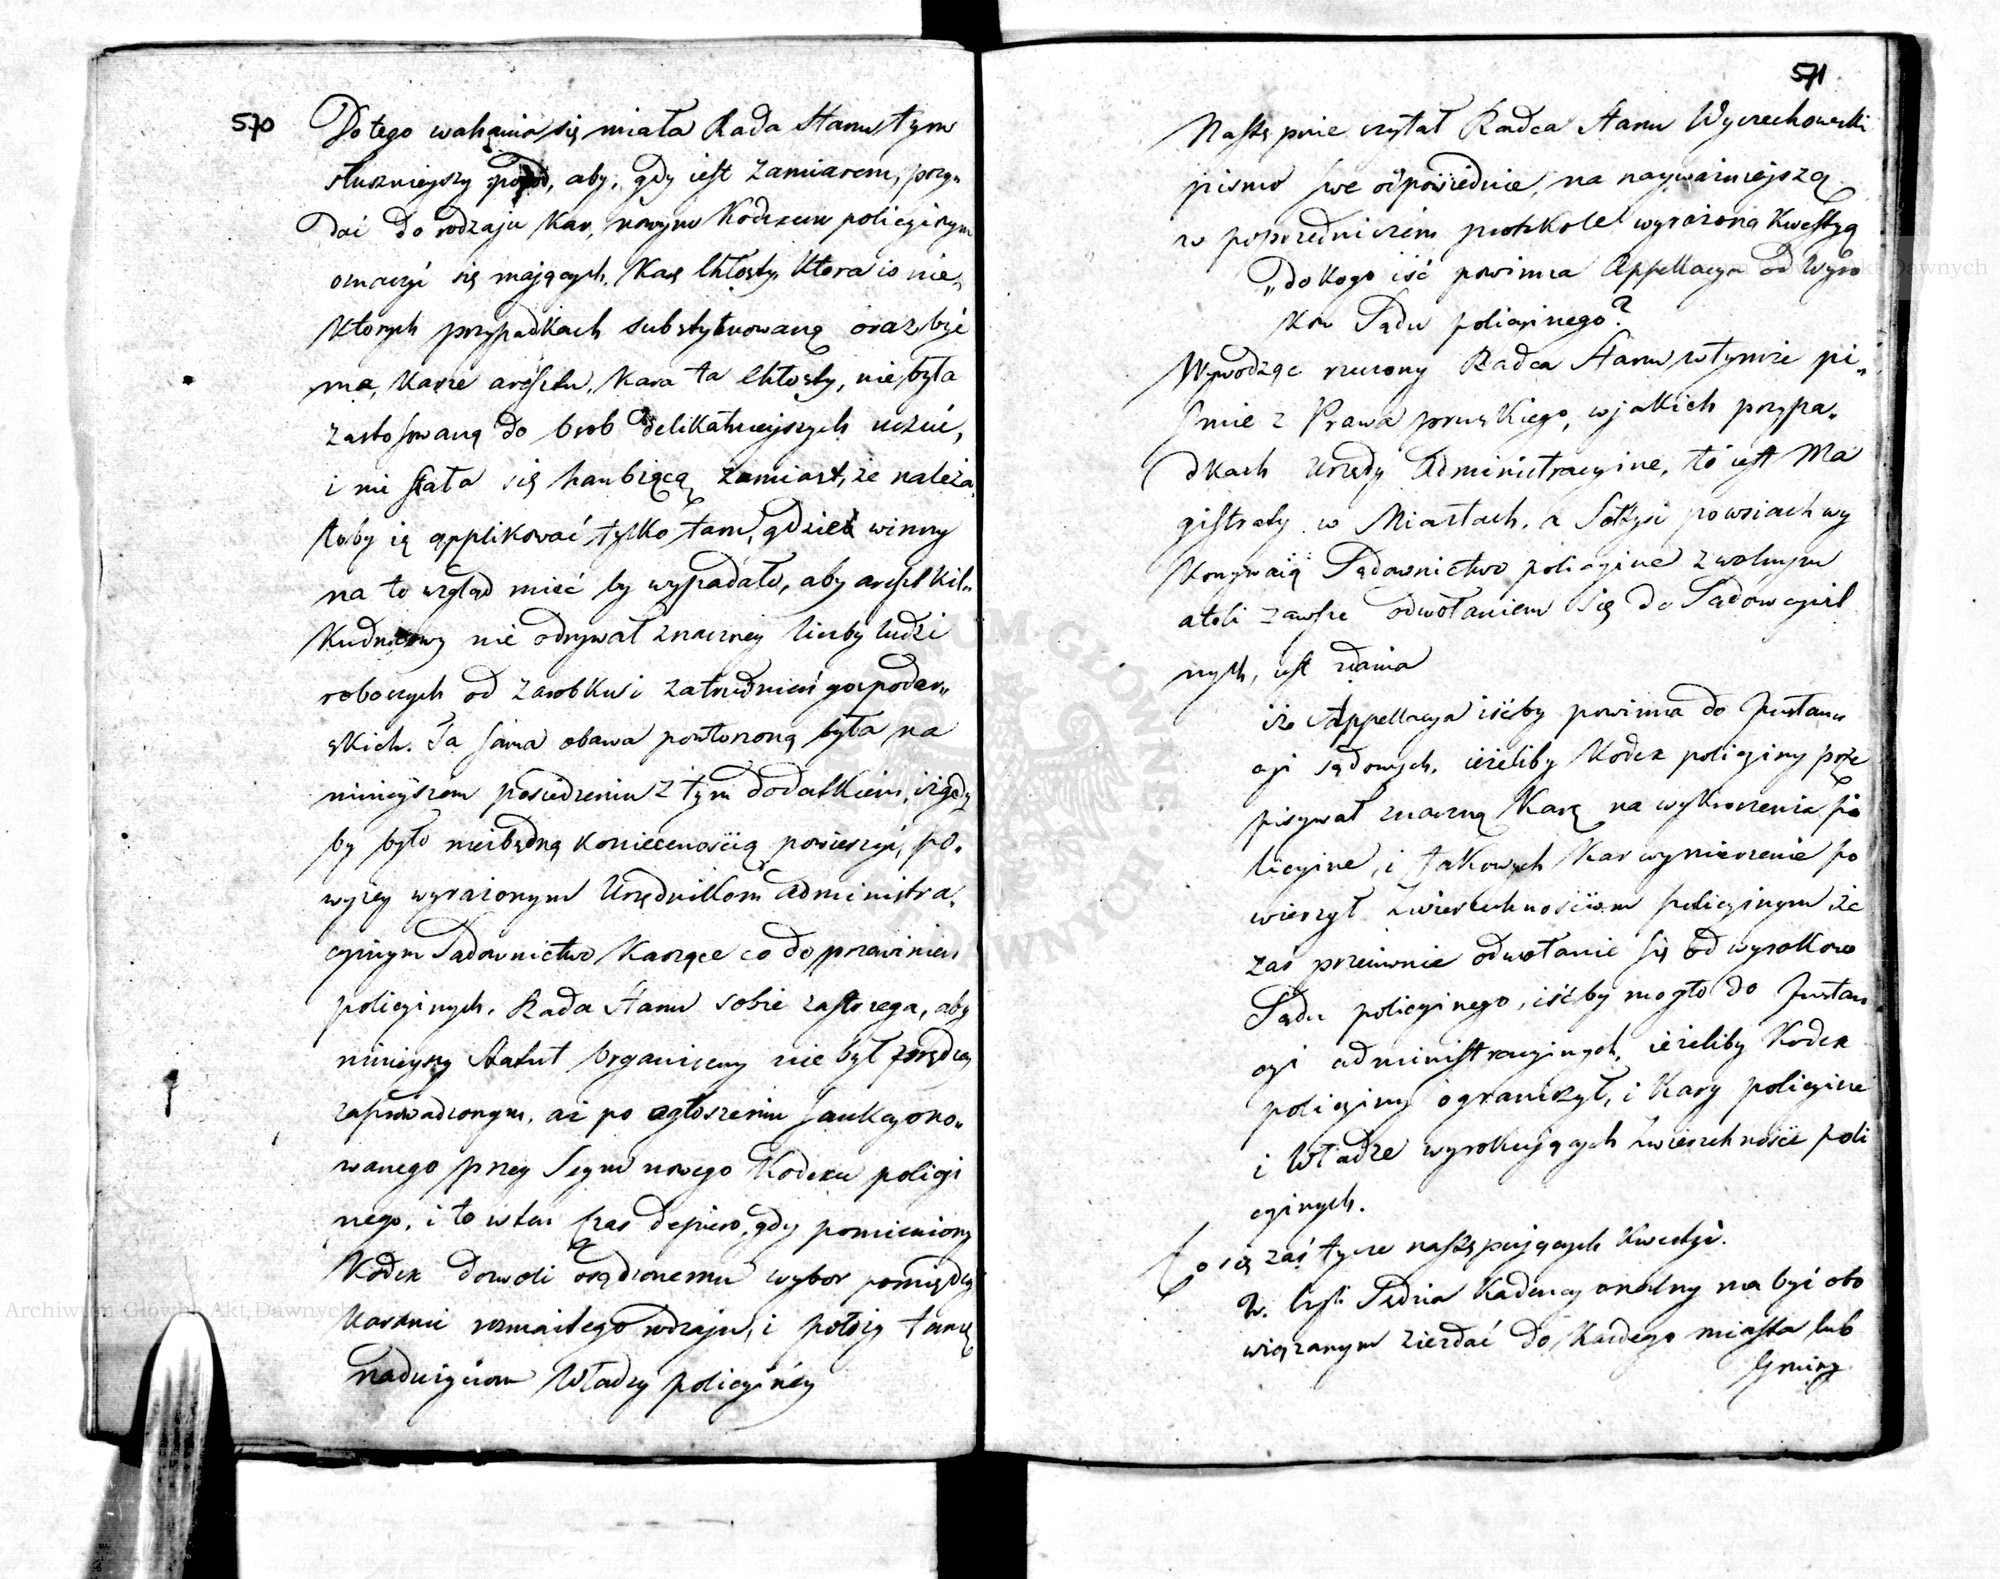 570
Do tego wahania się miała Rada Stanu tym
słuszniejszy powód, aby, gdy iest zamiarem, przy„
dać do rodzaju Kar, nowym Kodexem policyinym
oznaczyć się mających, Karę Chłosty, Która w nie„
Których przypadkach substytuowaną oraz być
ma, Karze aresztu, Kara ta Chłosty, nie była
zastosowaną do Osob delikatnieyszych uczuć,
i nie stała się hanbiącą zamiast, że należa„
łoby ią applikować tylko tam, gdzie winny
na to wzgląd mieć by wypadało, aby areszt Kil„
Kudniowy nie odrywał znaczney liczby ludzi
roboczych od zarobku i zatrudnień gospodar„
skich. Ta sama obawa powtorzoną była na
ninieyszem posiedzeniu z tym dodatkiem, iż gdy
by było niezbędną Koniecznością powierzyć, po„
wyżey wyrażonym Urzędnikom administra„
cyinym Sądownictwo Karzące co do przewinień
policyinych, Rada Stanu sobie zastrzega, aby
ninieyszy Statut Organiczny nie był prędzey
zaprowadzonym, aż po ogłoszeniu sankcyono„
wanego przez Seym nowego Kodexu policyi
nego, i to w ten czas dopiero, gdy pomieniony
Kodex dozwoli osądzonemu wybor pomiędzy
Karami rozmaitego rodzaju, i położy tamę
nadużyciom Władzy policyiney
571
Następnie czytał Radca Stanu Wyczechowski
pismo swe odpowiednie, na nayważniejszą
w poprzedniczem protokole wyrażoną Kwestyą
„do Kogo iść powinna Appellacya od Wyro
Kow Sądu policyinego?
Wywodząc rzeczony Radca Stanu w tymże pi„
śmie z Prawa pruskiego, w jakich przypa„
dkach Urzędy Administracyine, to iest Ma
gistraty w Miastach, a Sołtysi po wsiach wy
Konywaią Sądownictwo policyine z wolnym
atoli zawsze odwołaniem się do Sądów cywil
nych, iest zdania
iż Appellacya iśćby powinna do Instan
cyi sądowych, ieżeliby Kodex policyiny prze
pisywał znaczną Karę na wykroczenia po
licyine, i takowych Kar wymierzenie po
wierzył Zwierzchnościom policyinym iż
zaś przeciwnie odwołanie się od wyrokow
Sądu policyinego, iśćby mogło do Instan
cyi administracyinych, ieżeliby Kodex
policyiny ograniczył, i Kary policyine
i Władze wyrokuiących Zwierzchności poli
cyinych.
Co się zaś tycze następujących Kwestyi.
2. Czyli Sędzia Kadencyonalny ma być obo
wiązanym zjeżdać do Każdego miasta lub
Gminy
Archiwum Główne Akt Dawnych